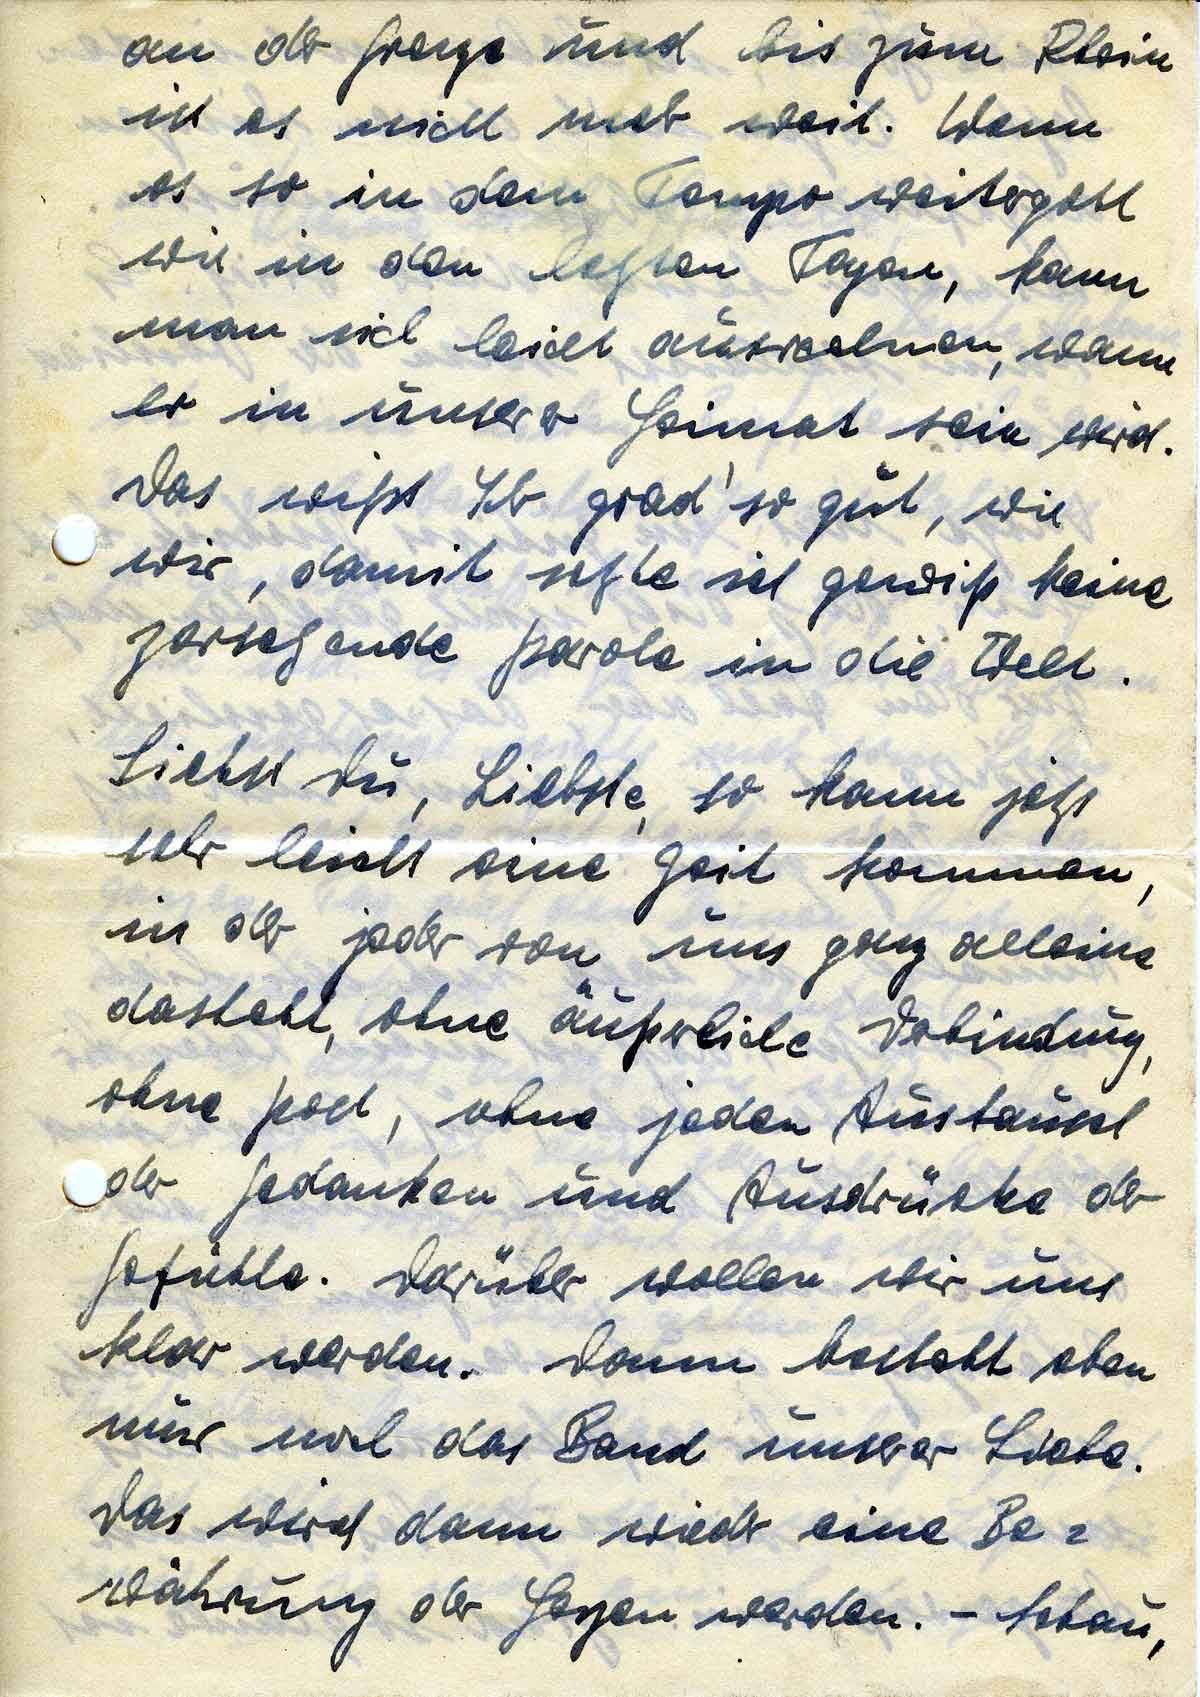 an der Grenze und bis zum Rhein
ist es nicht mehr weit. Wenn
es so in dem Tempo weitergeht
wie in den letzten Tagen, kann
man sich leicht ausrechnen, wann
er in unserer Heimat sein wird.
Das wißt Ihr grad' so gut, wie
wir, damit setzte ich gewiß keine
zersetzende Parole in die Welt.
Siehst Du, Liebste, so kann jetzt
sehr leicht eine Zeit kommen,
in der jeder von uns ganz alleine
dasteht, ohne äußerliche Verbindung,
ohne Post, ohne jeden Austausch
der Gedanken und Ausdrücke der
Gefühle. Darüber wollen wir uns
klar werden. Dann besteht eben
nur noch das Band unserer Liebe.
Das wird dann wieder eine Be=
währung der Herzen werden. – Schau,